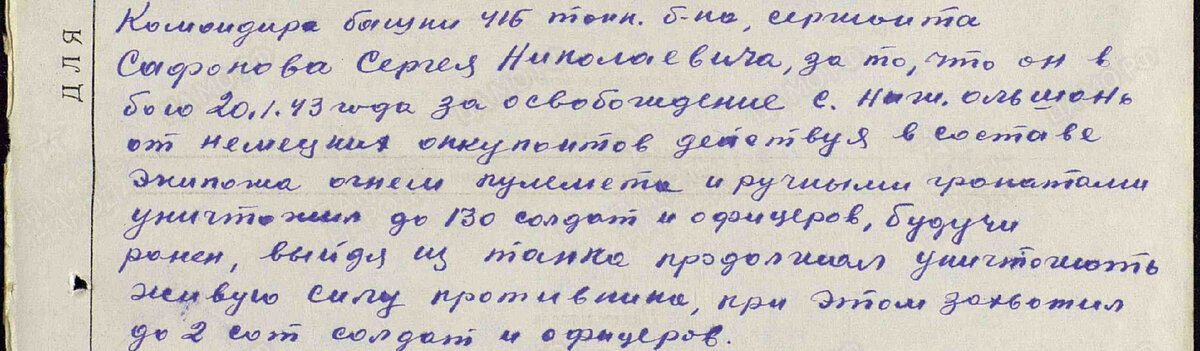 ДЛЯ
Командира башни 416 танк. б-на, сержанта
Сафонова Сергея Николаевича, за то, что он в
бою 20.1.43 года за освобождение с. Ниж. Ольшань
от немецких оккупантов действуя в составе
экипажа огнем пулемета и ручными гранатами
уничтожил до 130 солдат и офицеров, будучи
ранен, выйдя из танка продолжал уничтожать
живую силу противника, при этом захватил
до 2 сот солдат и офицеров.